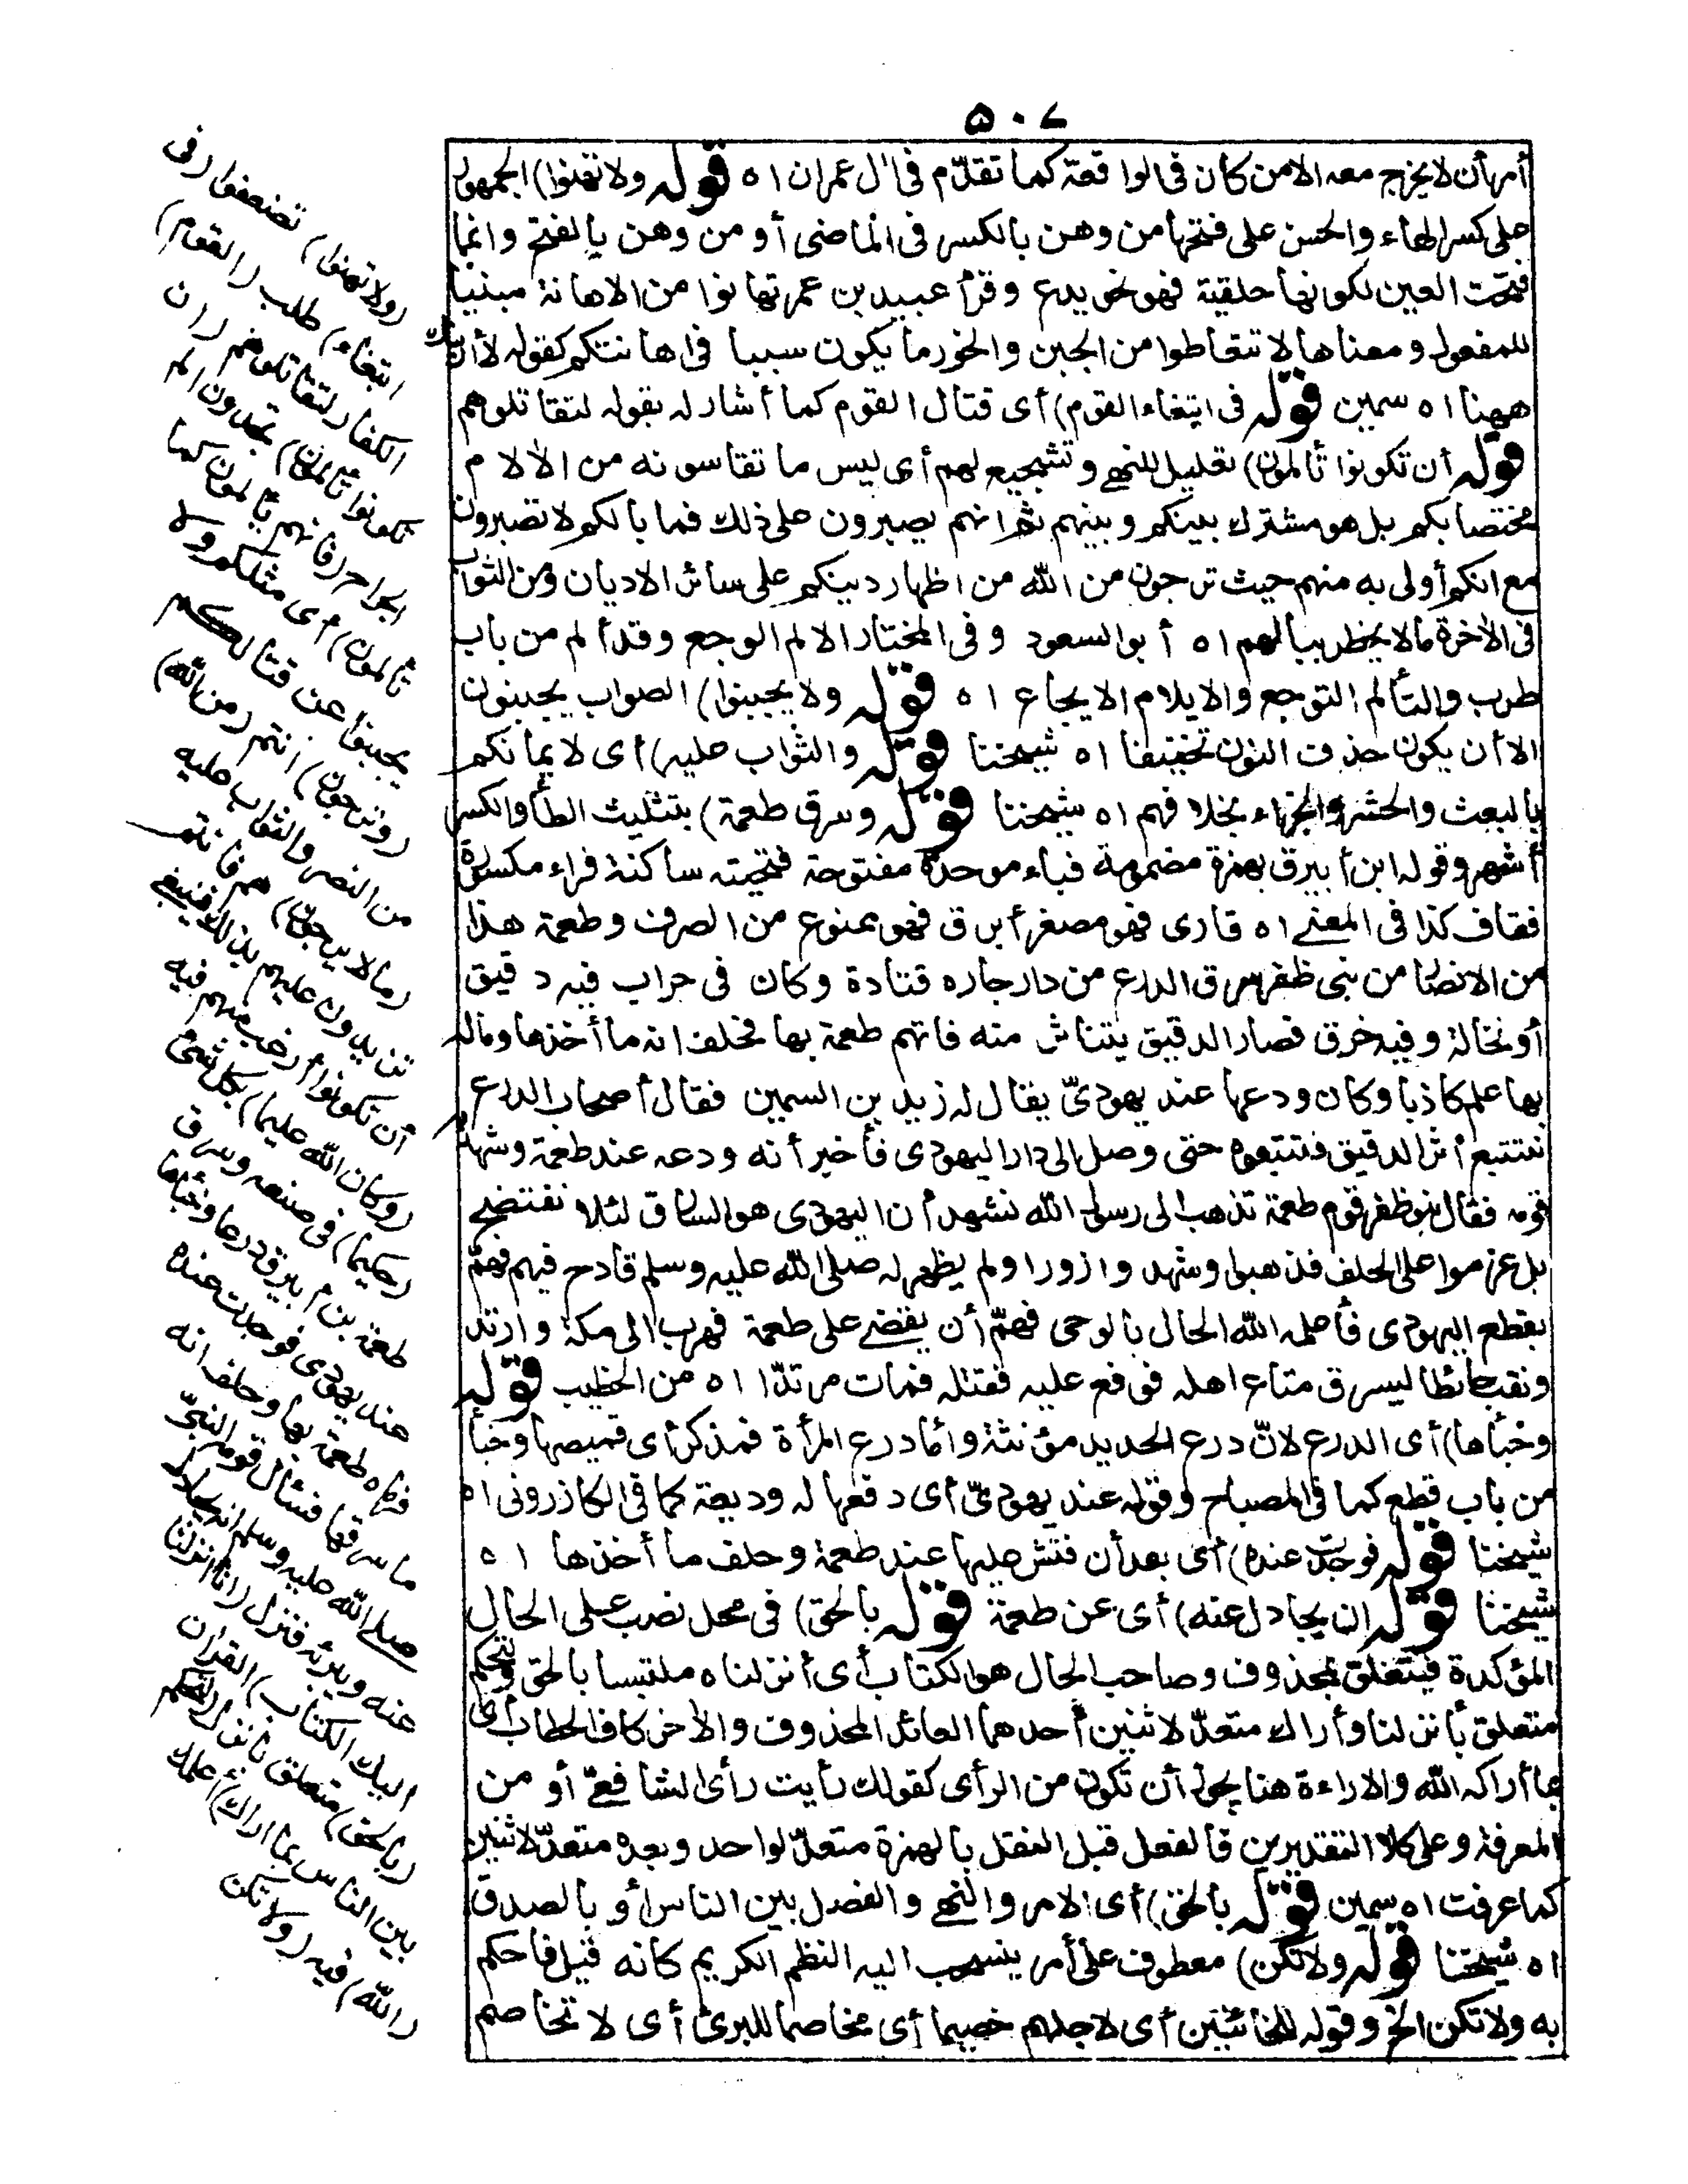 ۵۰۷
أمر أن لا يخرج معه الا من كان فى الواقعة كما تقدّم فى اٰل عمران اه قوله ولا تهنوا) الجمهور
على كسر الهاء والحسن على فتحها من وهن بالكسر فى الماضى أو من وهن بالفتح وانما
فتحت العين لكونها حلقية فهو نحو يدع وقرأ عبيد بن عمر تهانوا من الاهانة مبنيا
للمفعول ومعناها لا تتعاطوا من الجبن والخور ما يكون سببا فى اهانتكم كقوله لا أرينك
ههنا اه سمين قوله فى ابتغاء القوم) أى قتال القوم كما أشار له بقوله لتقاتلوهم
قوله أن تكونوا تألمون) تعليل للنهى وتشجيع لهم أى ليس ما تقاسونه من الاٰلام
مختصا بكم بل هو مشترك بينكم وبينهم ثم انهم يصبرون على ذلك فما بالكم لا تصبرون
مع انكم أولى به منهم حيث ترجون من الله من اظهار دينكم على سائر الاديان ومن الثواب
فى الاٰخرة مالا يخطر ببالهم اه أبو السعود وفى المختار الالم الوجع وقد ألم من باب
طرب والتألم التوجع والايلام الايجاع اه قوله ولا يجبنوا) الصواب يجبنون
الا أن يكون حذف النون تخفيفا اه شيخنا قوله والثواب عليه) أى لايمانكم
بالبعث والحشر والجزاء بخلافهم اه شيخنا قوله وسرق طعمة) بتثليث الطاء والكسر
أشهر وقوله ابن أبيرق بهمزة مضمومة فباء موحدة مفتوحة فتحتية ساكنة فراء مكسورة
فقاف كذا فى المغنى اه قارى فهو مصغر أبرق فهو ممنوع من الصرف وطعمة هذا
من الانصار من بنى ظفر سرق الدرع من دار جاره قتادة وكان فى جراب فيه دقيق
أو نخالة وفيه خرق فصار الدقيق يتناثر منه فاتهم طعمة بها فحلف انه ما أخذها وماله
بها علم كاذبا وكان ودعها عند يهودىّ يقال له زيد بن السمين فقال أصحاب الدرع
نتتبع أثر الدقيق فتتبعوه حتى وصل الى دار اليهودى فأخبر أنه ودعه عند طعمة وشهد
قومه فقال بنو ظفر قوم طعمة نذهب الى رسول الله نشهد أن اليهودى هو السارق لئلا نفتضح
بل عزموا على الحلف فذهبوا وشهدوا زورا ولم يظهر له صلى الله عليه وسلم قادح فيهم فهمّ
بقطع اليهودى فأعلمه الله الحال بالوحى فهمّ أن يقضى على طعمة فهرب الى مكة وارتد
ونقب حائطا ليسرق متاع اهله فوقع عليه فقتله فمات مرتدّا اه من الخطيب قوله
وخبأها) أى الدرع لانّ درع الحديد مؤنثة وأما درع المرأة فمذكر أى قميصها وخبأ
من باب قطع كما فى المصباح وقوله عند يهودىّ أى دفعها له وديعة كما فى الكازرونى اه
شيخنا قوله فوجدت عنده) أى بعد أن فتش عليها عند طعمة وحلف ما أخذها اه
شيخنا قوله ان يجادل عنه) أى عن طعمة قوله بالحق) فى محل نصب على الحال
المؤكدة فيتعلق بمحذوف وصاحب الحال هو الكتاب أى أنزلناه ملتبسا بالحق ولتحكم
متعلق بأنزلنا وأراك متعدّ لاثنين أحدهما العائد المحذوف والاٰخر كاف الخطاب أى
بما أراكه الله والاراءة هنا يجوز أن تكون من الرأى كقولك رأيت رأى الشافعىّ أو من
المعرفة وعلى كلا التقديرين فالفعل قبل النقل بالهمزة متعدّ لواحد وبعده متعدّ لاثنين
كما عرفت اه سمين قوله بالحق) أى الامر والنهى والفصل بين الناس أو بالصدق
اه شيخنا قوله ولا تكن) معطوف على أمر ينسحب اليه النظم الكريم كانه قيل فاحكم
به ولا تكن الخ وقوله للخائنين أى لاجلهم خصيما أى مخاصما للبرئ أى لا تخاصم
(ولا تهنوا) تضعفوا (فى
ابتغاء) طلب (القوم)
الكفار لتقاتلوهم (ان
تكونوا تألمون) تجدون الم
الجراح (فانهم يألمون كما
تألمون) أى مثلكم ولا
يجبنوا عن قتالكم
(وترجون) انتم (من الله)
من النصر والثواب عليه
(مالا يرجون) هم فانتم
تزيدون عليهم بذلك فينبغى
أن تكونوا أرغب منهم فيه
(وكان الله عليما) بكل شئ
(حكيما) فى صنعه وسرق
طعمة بن أبيرق درعا وخبأها
عند يهودى فوجدت عنده
فرماه طعمة بها وحلف انه
ما سرقها فسأل قومه النبىّ
صلى الله عليه وسلم ان يجادل
عنه ويبرئه فنزل (انا انزلنا
اليك الكتاب) القراٰن
(بالحق) متعلق بانزل (لتحكم
بين الناس بما اراك) أعلمك
(الله) فيه (ولا تكن